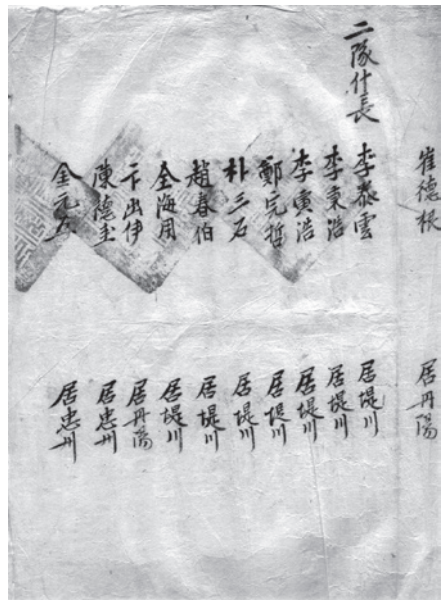 崔德根 居丹陽
二隊什長 李泰雲 居堤川
李秉浩 居堤川
李寅浩 居堤川
鄭完哲 居堤川
朴三石 居堤川
趙春伯 居堤川
全海用 居堤川
卞出伊 居丹陽
居忠州
居忠州